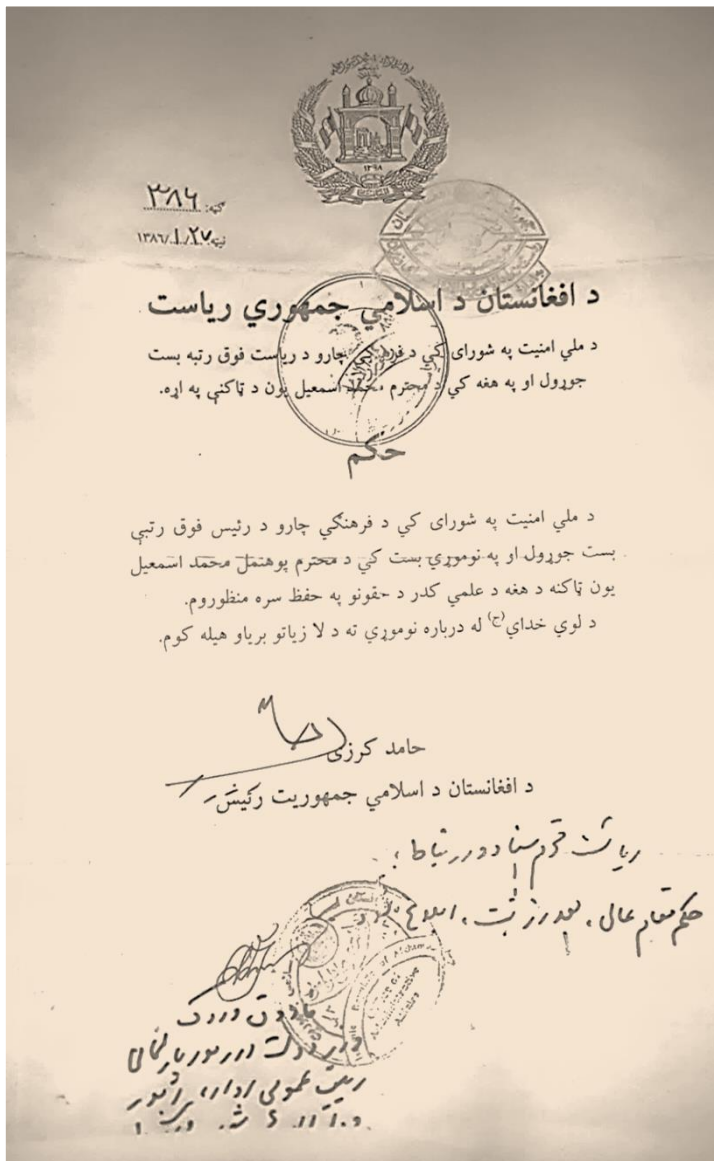 ۱۲۹۸
ګڼه: ۳۸۶
نېټه ۱۳۸۶/۱/۲۷
د افغانستان د اسلامي جمهوري رياست
د ملي امنيت په شورای کي د فرهنگي چارو د رياست فوق رتبه بست
جوړول او په هغه کي د محترم محمد اسمعيل يون د ټاکنې په اړه.
حکم
د ملي امنيت په شورای کي د فرهنگي چارو د رئيس فوق رتبې
بست جوړول او په نوموړي بست کي د محترم پوهنمل محمد اسمعيل
يون ټاکنه د هغه د علمي کدر د حقونو په حفظ سره منظوروم.
د لوي خدای(ج) له درباره نوموړي ته د لا زياتو برياو هيله کوم.
حامد کرزی
د افغانستان د اسلامي جمهوريت رئيس
رياست محترم اسناد و ارتباط:
حکم مقام عالی، بعد از ثبت،
فاروق وردک
وزير دولت در امور پارلمانی
رئيس عمومی اداره امور